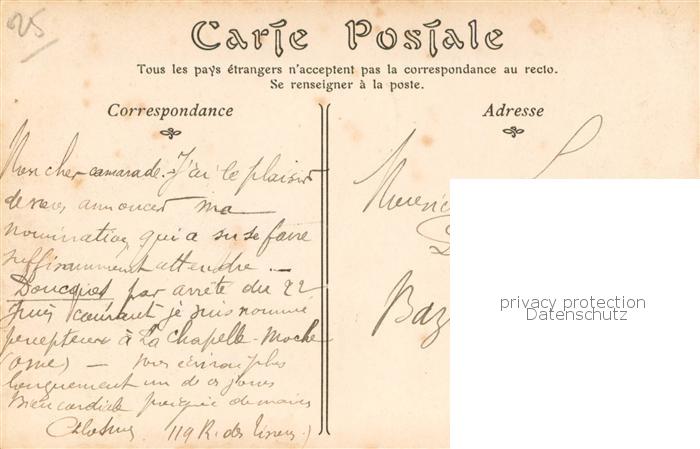 25
Carte Postale
Tous les pays étrangers n'acceptent pas la correspondance au recto.
Se renseigner à la poste.
Correspondance
Adresse
Mon cher camarade. J'ai le plaisir
de vous annoncer ma
nomination, qui a su se faire
suffisamment attendre. —
par arrêté du 22
courant je suis nommé
percepteur à La Chapelle-Moche
(Orne) — Vous écrirai plus
longuement un de ces jours
Bien cordiale poignée de mains
119 R. des
Baz
privacy protection
Datenschutz